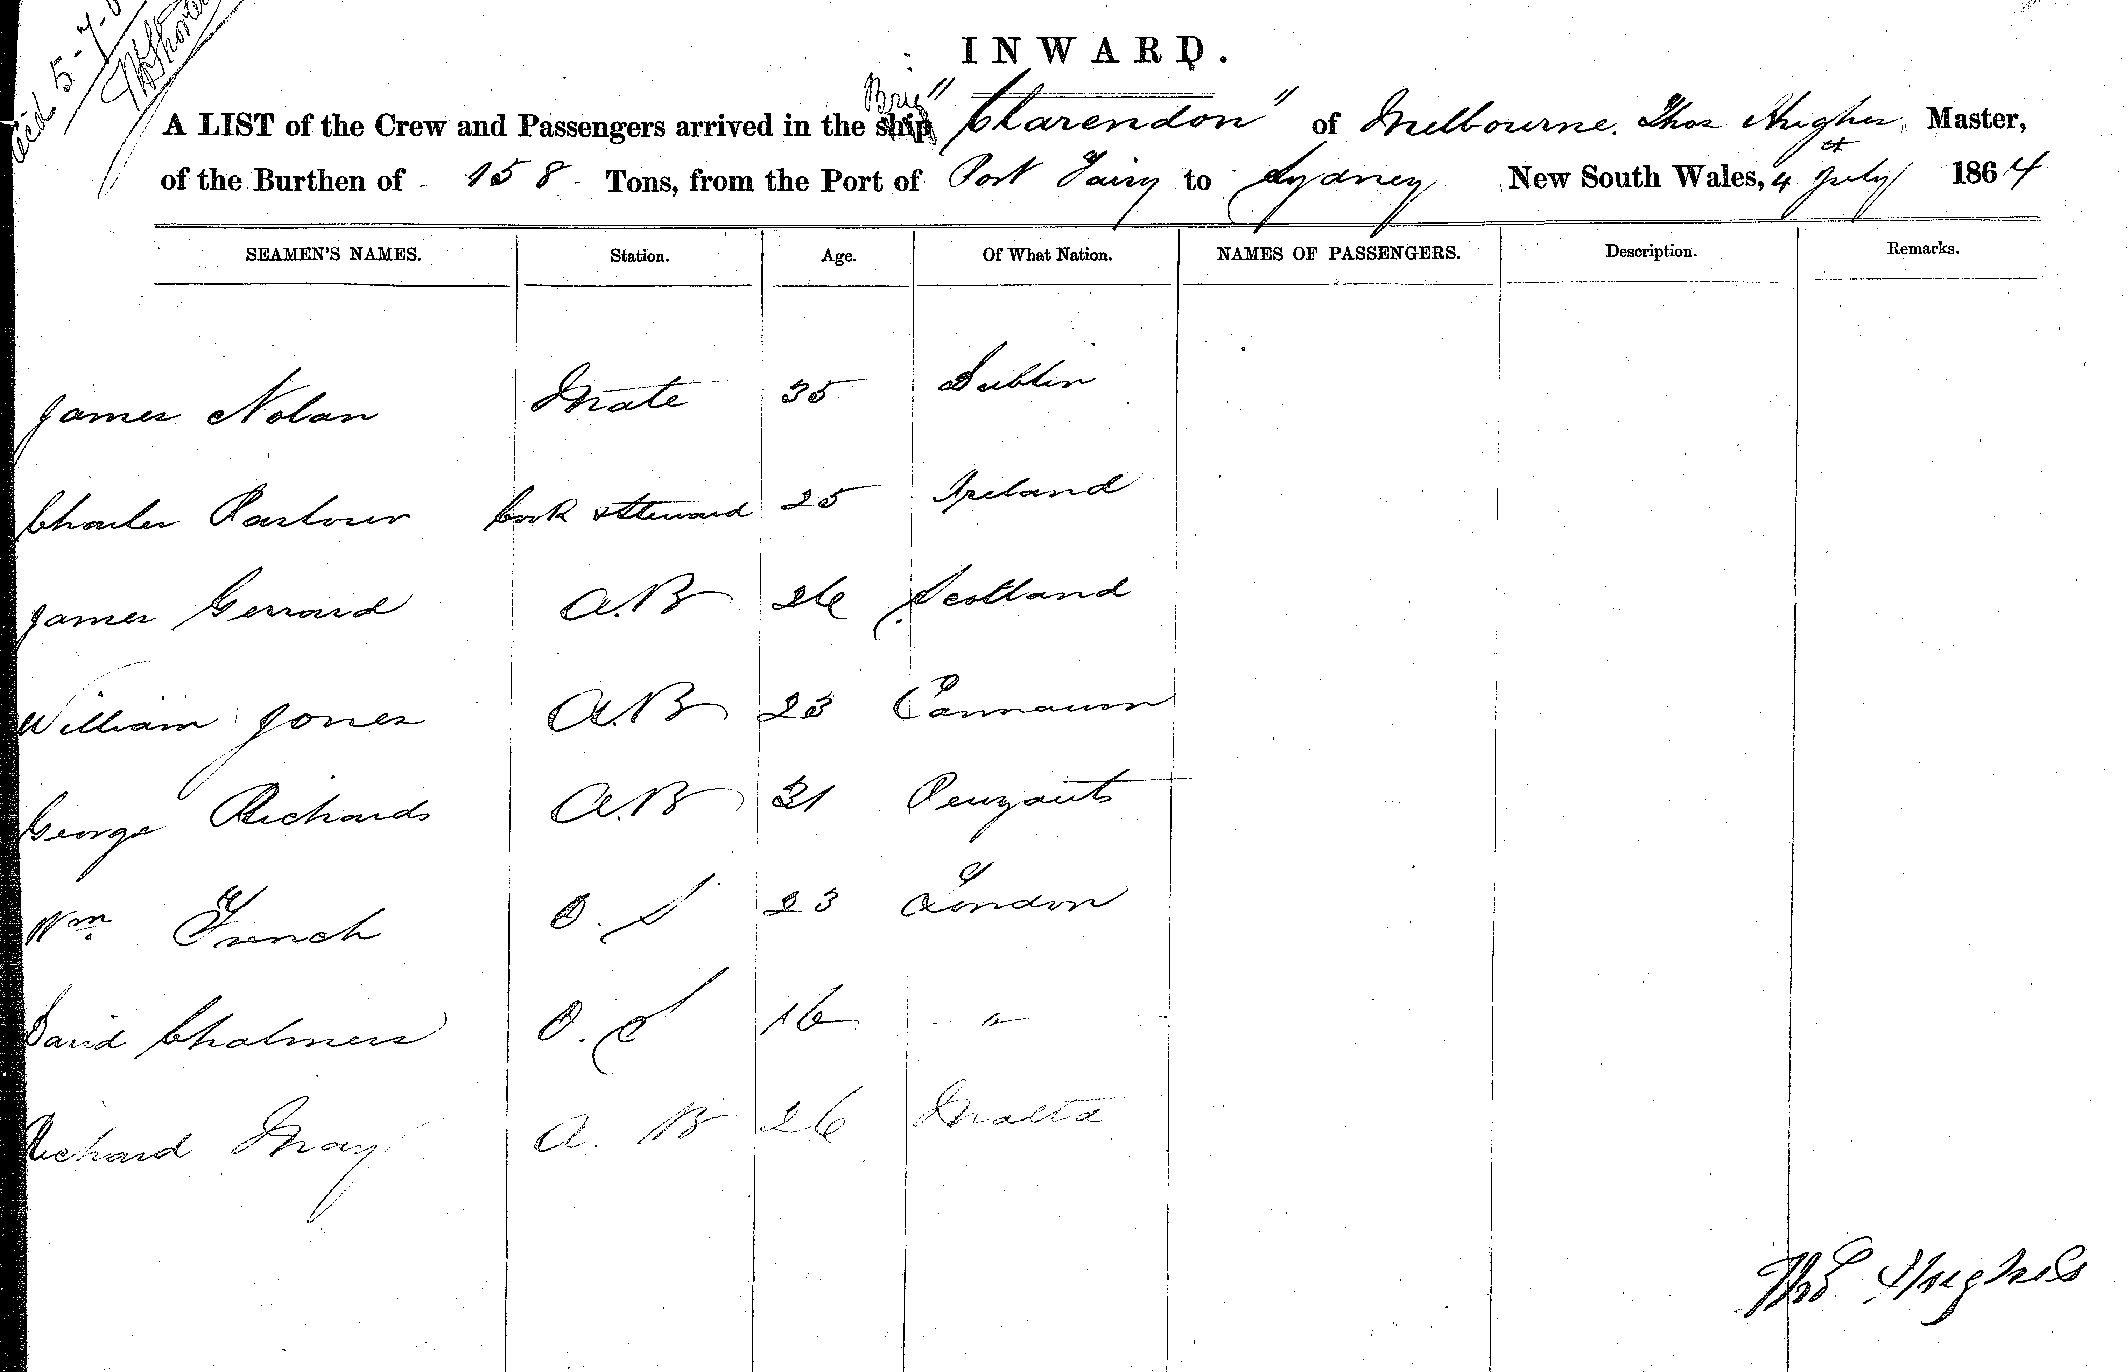 Rec'd 5-7-
INWARD.
A LIST of the Crew and Passengers arrived in the Brig "Clarendon" of Melbourne. Thos Hughes, Master,
of the Burthen of 158 Tons, from the Port of Port Fairy to Sydney New South Wales, 4 July 1864
SEAMEN'S NAMES. Station. Age. Of What Nation. NAMES OF PASSENGERS. Description. Remarks.
James Nolan Mate 35 Dublin
Charles Cook & Steward 25 Ireland
James Gerrard A.B 26 Scotland
William Jones A.B 23
George Richards A.B 21 Penzants
Wm French O.S 23 London
David Chalmers O.S 16 "
Richard May A.B 26 Malta
Thos Hughes